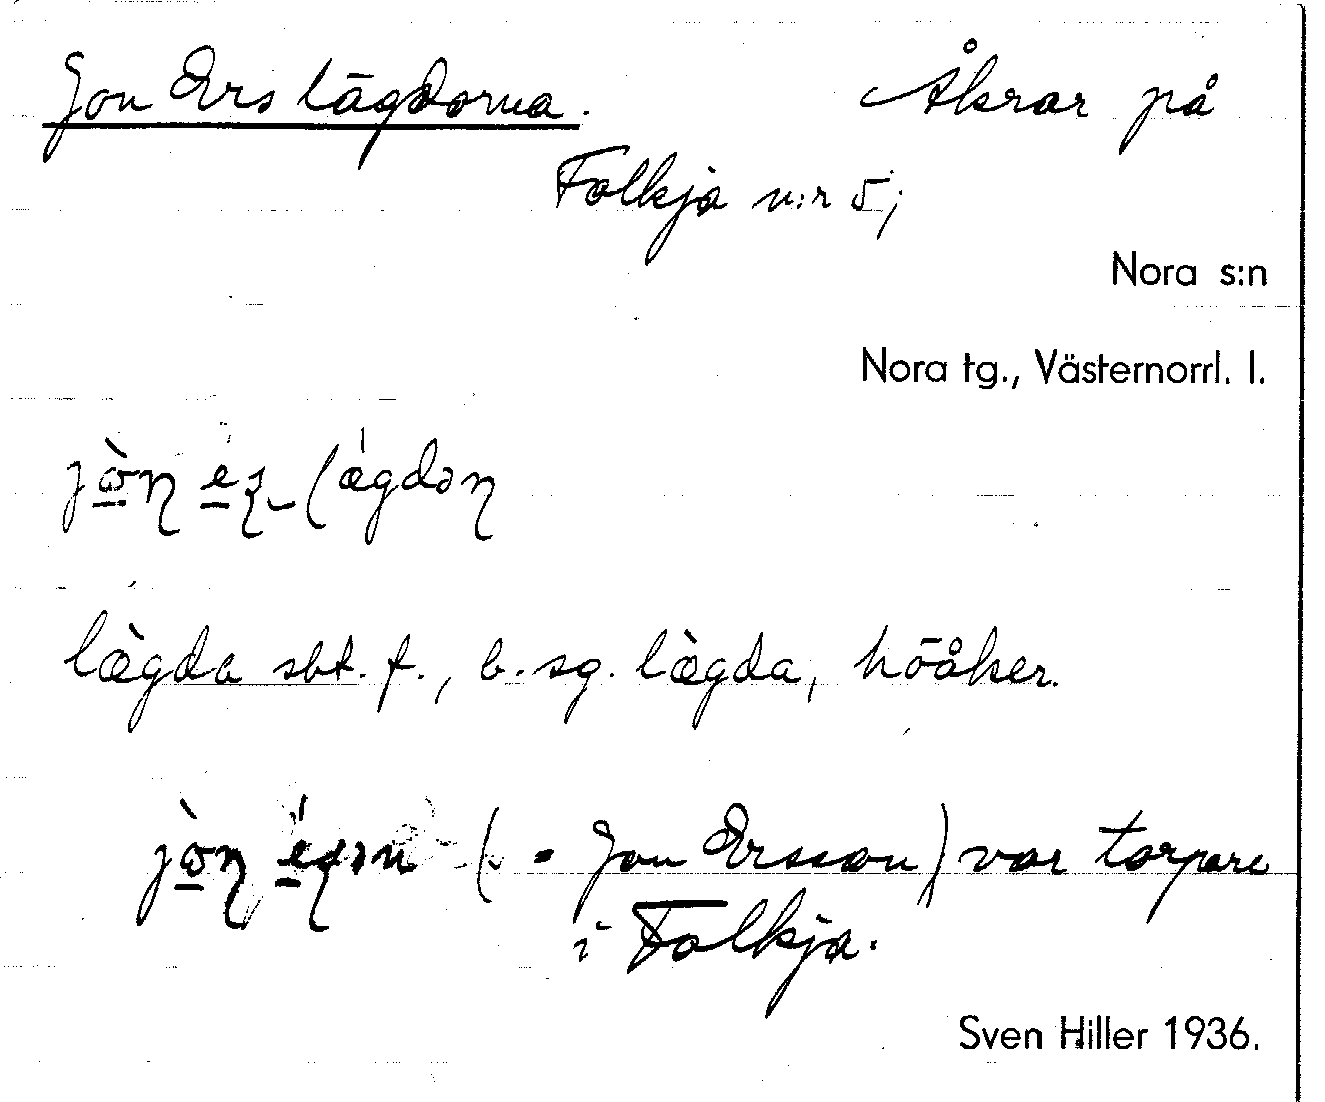 Jon Ers lägdorna. Åkrar på
Folkja n:r 5;
Nora s:n
Nora tg., Västernorrl. l.
lægda sbt. f., b. sg. lægda, höåker.
(= Jon Ersson) var torpare
i Folkja.
Sven Hiller 1936.